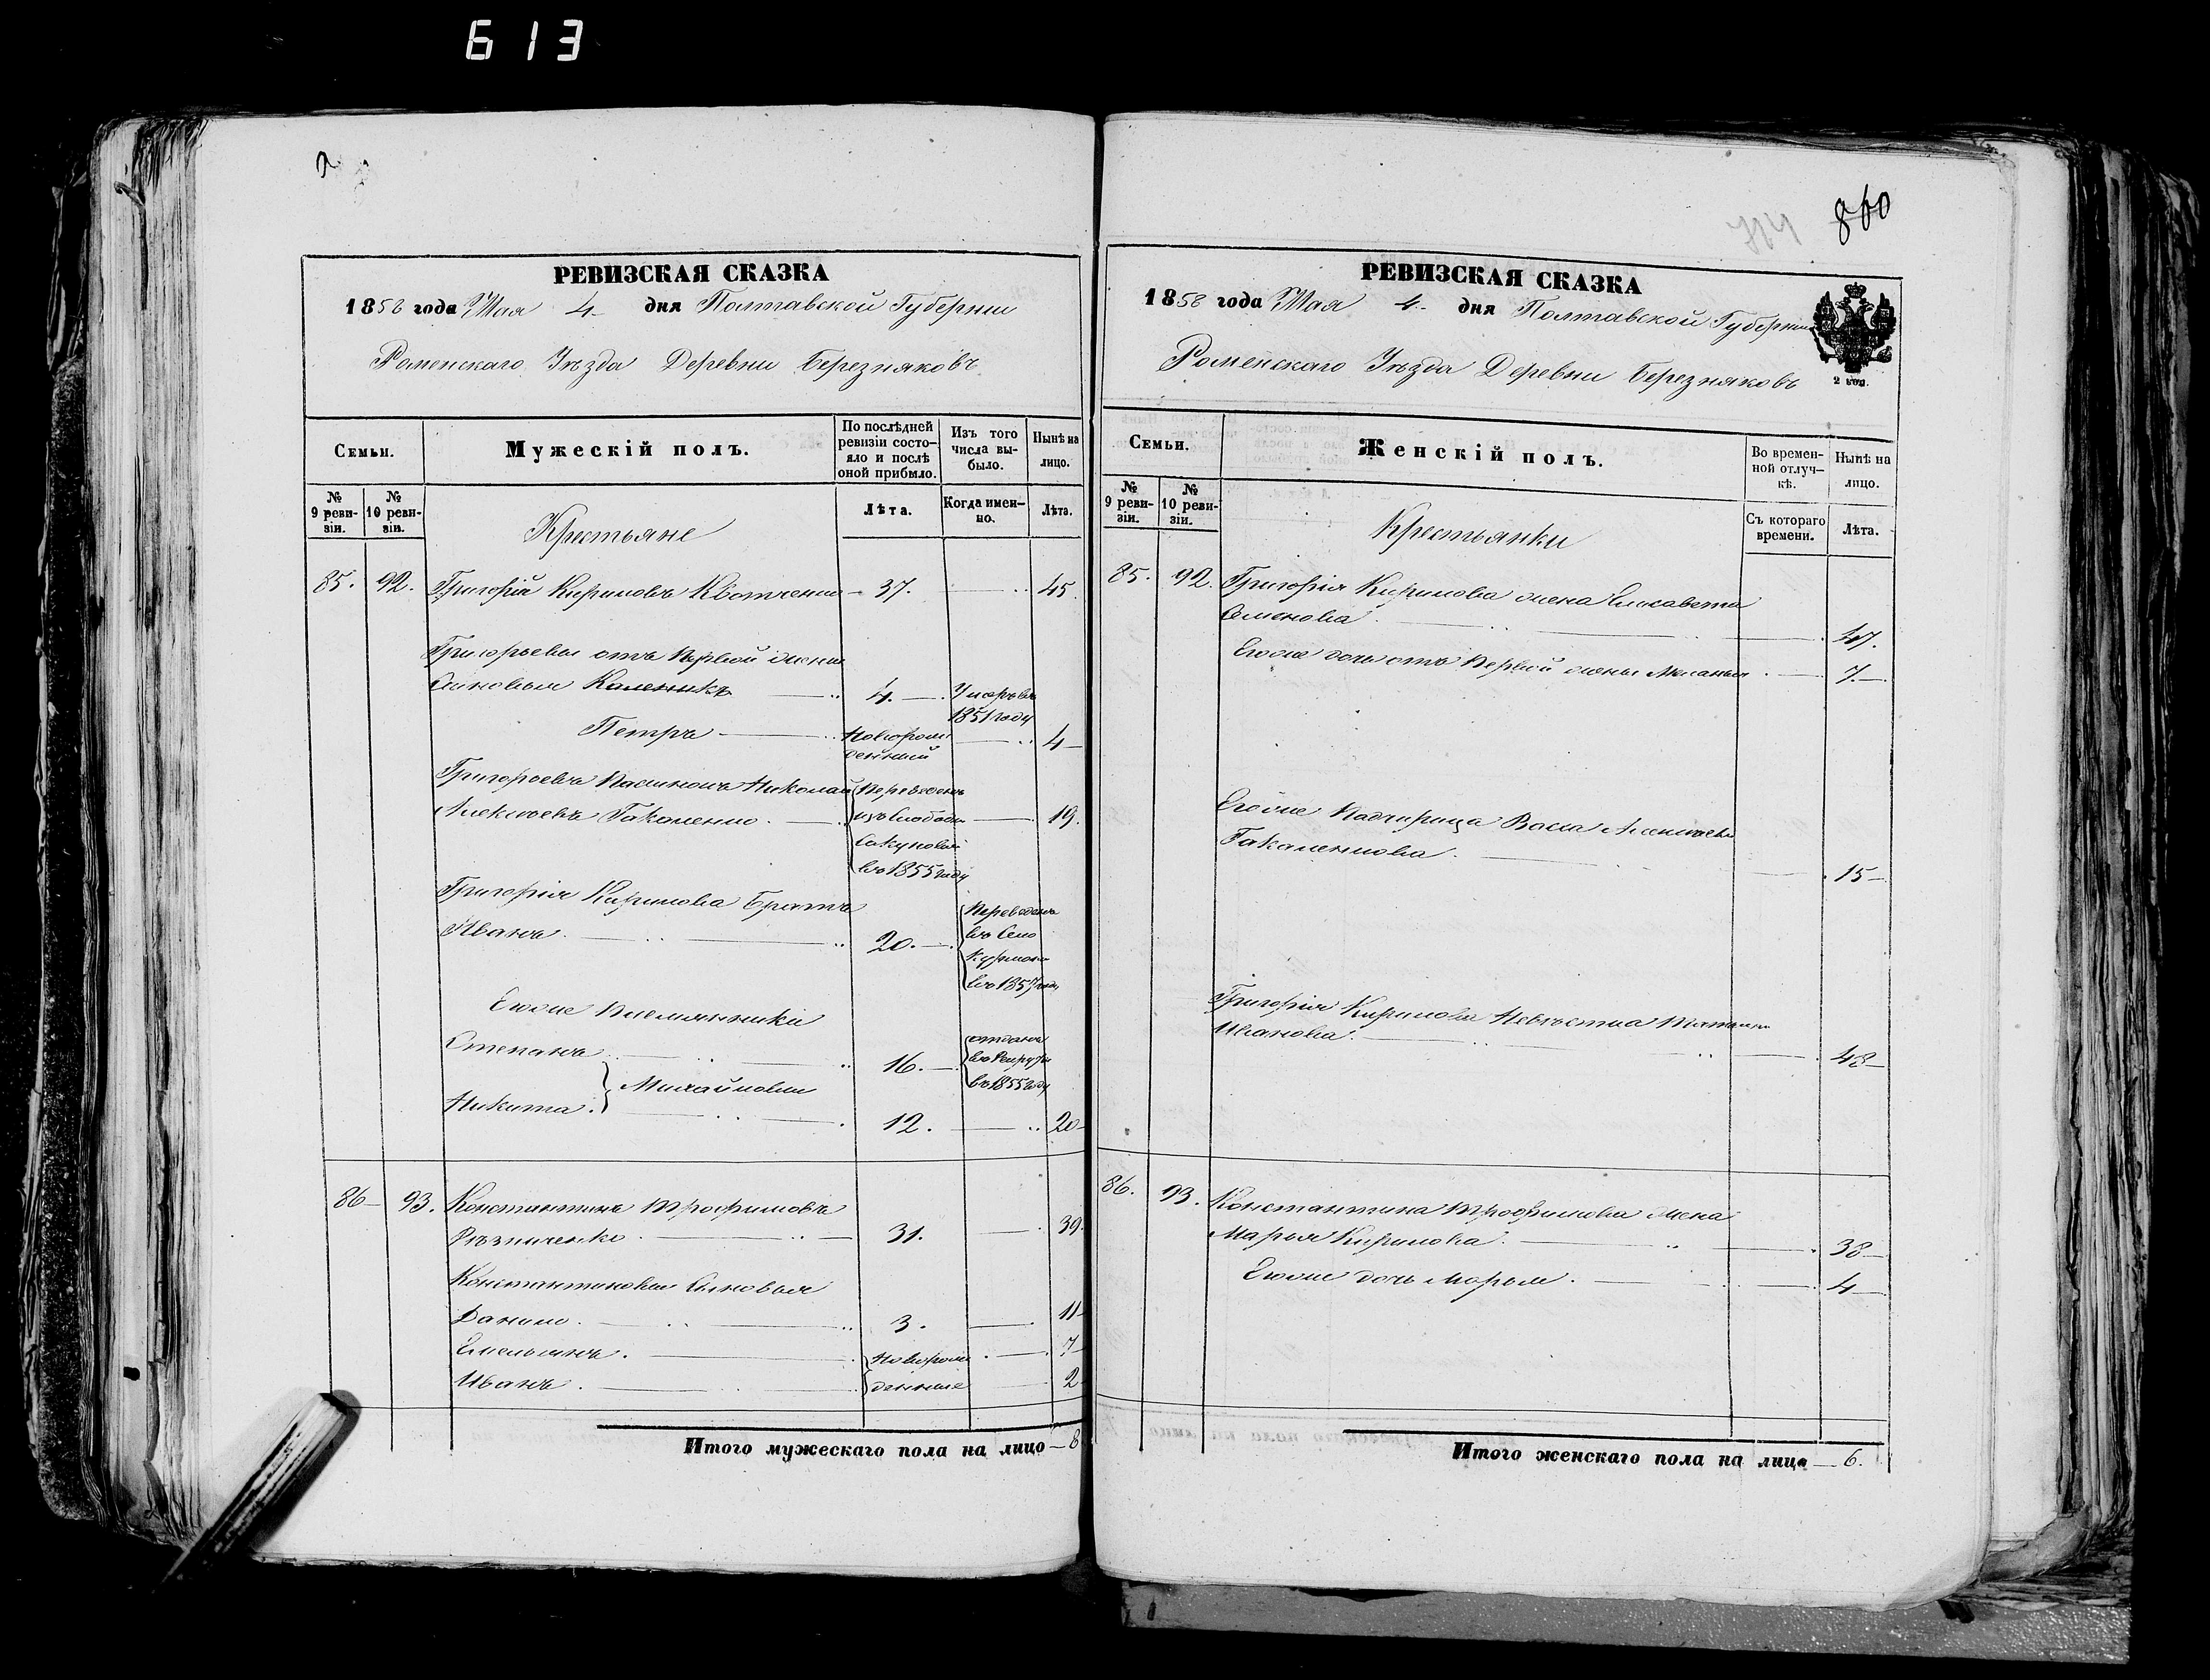 613
860
РЕВИЗСКАЯ СКАЗКА
1858 года Мая 4 дня Полтавской Губернии
Роменскаго Уѣзда Деревни Березняковъ
Семьи.
Мужескій полъ.
По послѣдней ревизіи состояло и послѣ оной прибыло.
Изъ того числа выбыло.
Нынѣ на лицо.
№ 9 ревизіи.
№ 10 ревизіи.
Крестьяне
Лѣта.
Когда именно.
Лѣта.
85. 92. Григорій Кириловъ 37. 45.
Григорьевы отъ первой жены
Сыновья Каленикъ 4. Умеръ въ
1851 году
Петръ Новорож 4
денный
Григорьевъ Пасынокъ Николай Переведенъ
Алексѣевъ Гакаленко изъ Слободы 19.
въ 1855 году
Григорія Кирилова Братъ
Иванъ 20. Переведенъ
въ Село
въ 1857 году
Егоже Племянники
Степанъ 16. отданъ
въ Рекруты
въ 1855 году
Михайловы
Никита 12. 20
86 93. Константинъ Трофимовъ
Рѣзниченко 31. 39.
Константиновы Сыновья
Данило 3. 11
Емельянъ Новорож 7
Иванъ денные 2
Итого мужескаго пола на лицо 8
РЕВИЗСКАЯ СКАЗКА
1858 года Мая 4 дня Полтавской Губерніи
Роменскаго Уѣзда Деревни Березняковъ
2 коп.
Семьи.
Женскій полъ.
Во временной отлучкѣ.
Нынѣ на лицо.
№ 9 ревизіи.
№ 10 ревизіи.
Крестьянки
Съ котораго времени.
Лѣта.
85. 92. Григорія Кирилова жена Елисавета
Семенова 47.
Егоже дочь отъ первой жены Меланья 7.
Егоже Падчерица Васса Алексѣева
Гакаленкова 15
Григорія Кирилова Невѣстка Татьяна
Иванова 48
86. 93. Константина Трофимова жена
Марья Кирилова 38
Егоже дочь Марья 4
Итого женскаго пола на лицо 6.